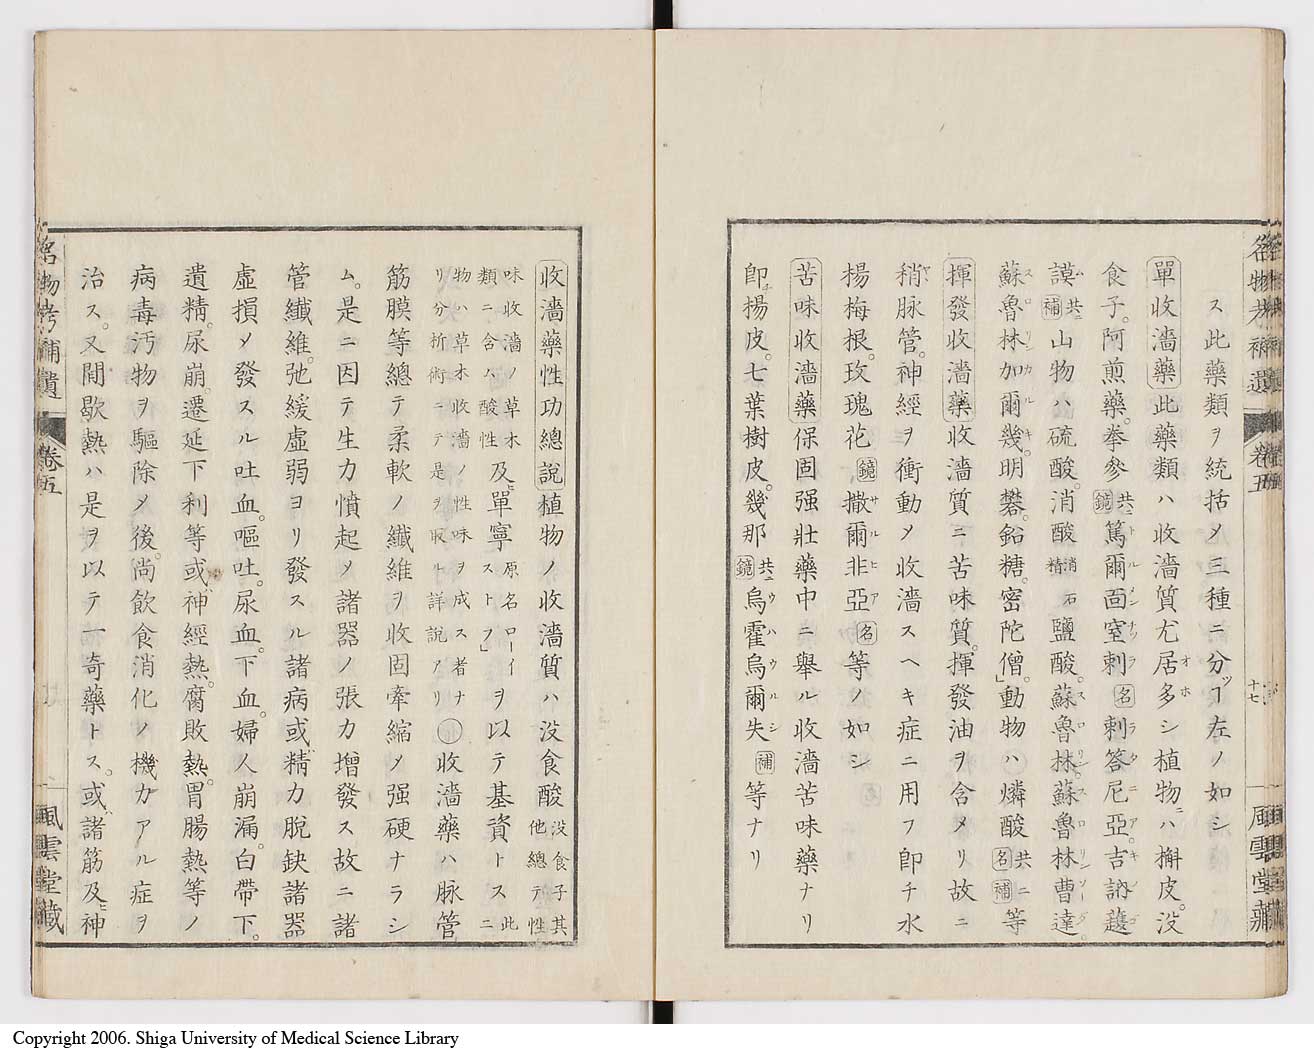 ス此藥類ヲ統括メ三種ニ分ツヿ左ノ如シ
單收濇藥此藥類ハ收濇質尤居多シ植物ニハ槲皮。没
食子。阿煎藥。拳參共ニ鏡篤爾面窒刺名刺答尼亞。吉納護
謨共ニ補山物ハ硫酸。消酸消石精鹽酸。蘇魯林。蘇魯林曹達。
蘇魯林加爾幾。明礬。鉛糖。密陀僧。」動物ハ燐酸共ニ名補等
揮發收濇藥收濇質ニ苦味質。揮發油ヲ含メリ故ニ
稍脉管。神經ヲ衝動メ收濇スヘキ症ニ用フ卽チ水
楊梅根。玫瑰花鏡撒爾非亞名等ノ如シ
苦味收濇藥保固强壯藥中ニ舉ル收濇苦味藥ナリ
卽楊皮。七葉樹皮。幾那共ニ鏡烏霍烏爾失補等ナリ
名物考補遺 卷五 十七 風雲堂藏
收濇藥性功總說植物ノ收濇質ハ没食酸没食子其他總テ性
味收濇ノ草木類ニ含ハ酸性及ニ單寧原名ローイストフ」ヲ以テ基資トス此ニ
物ハ草木收濇ノ性味ヲ成ス者ナリ分析術ニテ是ヲ取ル詳說アリ收濇藥ハ脉管
筋膜等總テ柔軟ノ纖維ヲ收固牽縮メ强硬ナラシ
ム。是ニ因テ生力憤起メ諸器ノ張力增發ス故ニ諸
管纖維。弛緩虛弱ヨリ發スル諸病或精力脫缺諸器
虛損メ發スル吐血。嘔吐。尿血。下血。婦人崩漏。白帶下。
遺精。尿崩。遷延下利等或神經熱。腐敗熱。胃腸熱等ノ
病毒汚物ヲ驅除メ後。尚飲食消化ノ機力アル症ヲ
治ス。又間歇熱ハ是ヲ以テ一奇藥トス。或諸筋及ニ神
名物考補遺 卷五 風雲堂藏
Copyright 2006. Shiga University of Medical Science Library